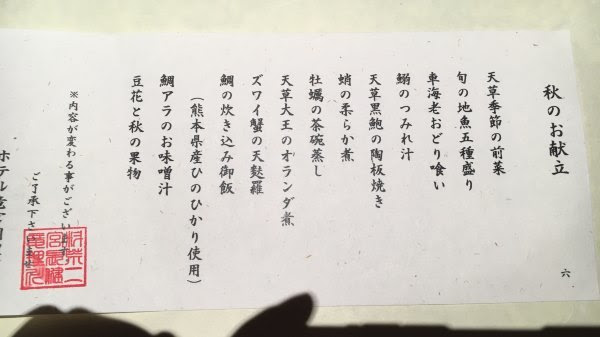 秋のお献立
天草季節の前菜
旬の地魚五種盛り
車海老おどり喰い
鰯のつみれ汁
天草黒鮑の陶板焼き
蛸の柔らか煮
牡蠣の茶碗蒸し
天草大王のオランダ煮
ズワイ蟹の天麩羅
鯛の炊き込み御飯
(熊本県産ひのひかり使用)
鯛アラのお味噌汁
豆花と秋の果物
※内容が変わる事がござい
ご了承下さい
ホテル竜宮
六